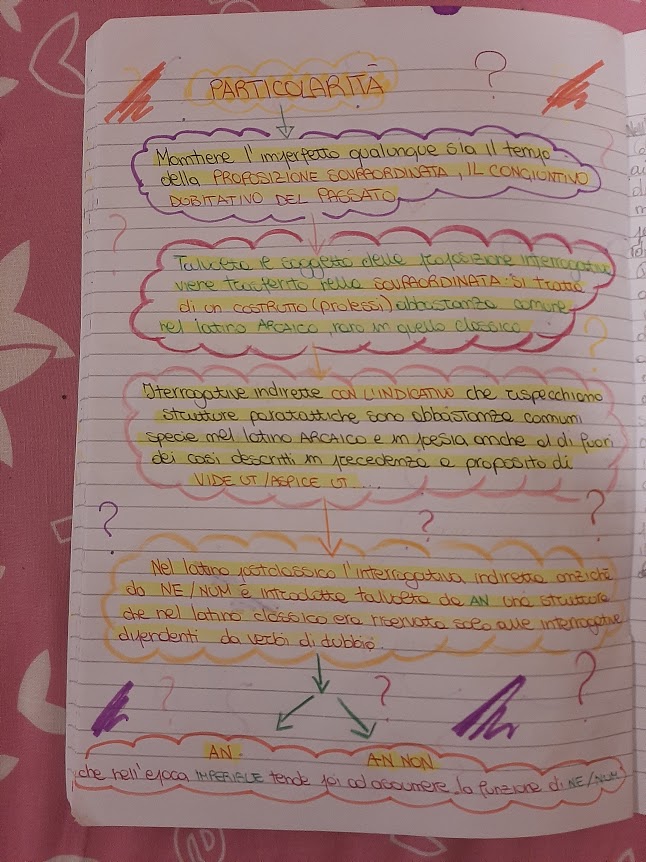 PARTICOLARITÀ
?
Mantiene l'imperfetto qualunque sia il tempo
della PROPOSIZIONE SOVRAORDINATA, IL CONGIUNTIVO
DUBITATIVO DEL PASSATO
?
Talvolta il soggetto della proposizione interrogativa
viene trasferito nella SOVRAORDINATA: SI TRATTA
di un COSTRUTTO (prolessi) abbastanza comune
nel latino ARCAICO, raro in quello classico
?
Iterrogative indirette CON L'INDICATIVO che rispecchiano
strutture paratattiche sono abbastanza comuni
specie nel latino ARCAICO e in poesia anche al di fuori
dei casi descritti in precedenza a proposito di
VIDE UT / ASPICE UT ...
? ? ?
Nel latino postclassico l'interrogativa indiretta anziché
da NE/NUM è introdotta talvolta da AN una struttura
che nel latino classico era riservata solo alle interrogative
dipendenti da verbi di dubbio
? ? ?
AN AN NON
che nell'epoca IMPERIALE tende poi ad assumere la funzione di NE/NUM